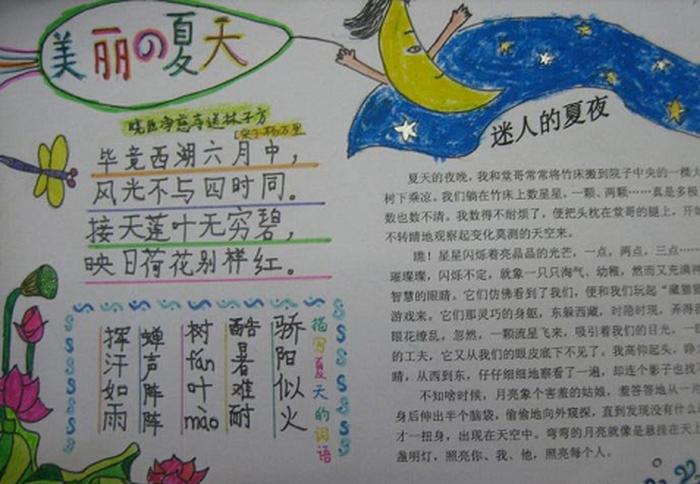 美丽の夏天
晓出净慈寺送林子方
[宋]杨万里
毕竟西湖六月中，
风光不与四时同。
接天莲叶无穷碧，
映日荷花别样红。
描写夏天的词语
骄阳似火
酷暑难耐
树fán叶mào
蝉声阵阵
挥汗如雨
迷人的夏夜
夏天的夜晚，我和堂哥常常将竹床搬到院子中央的一棵大
树下乘凉。我们躺在竹床上数星星，一颗、两颗……真是多极
数也数不清。我数得不耐烦了，便把头枕在堂哥的腿上，开始
不转睛地观察起变化莫测的天空来。
瞧！星星闪烁着亮晶晶的光芒，一点，两点，三点……
璀璨璨，闪烁不定，就象一只只淘气、幼稚，然而又充满神
智慧的眼睛，它们仿佛看到了我们，便和我们玩起“藏猫猫
游戏来。它们那灵巧的身躯，东躲西藏，时隐时现，弄得我
眼花缭乱。忽然，一颗流星飞来，吸引着我们的目光，一
的工夫，它又从我们的眼皮底下不见了。我高仰起头，睁
睛，从西到东，仔仔细细地察看了一遍，却连个影子也找不
不知啥时候，月亮象个害羞的姑娘，羞答答地从一
身后伸出半个脑袋，偷偷地向外窥探，直到发现没有什么
才一扭身，出现在天空中。弯弯的月亮就像是悬挂在天上
盏明灯，照亮你、我、他，照亮每个人。